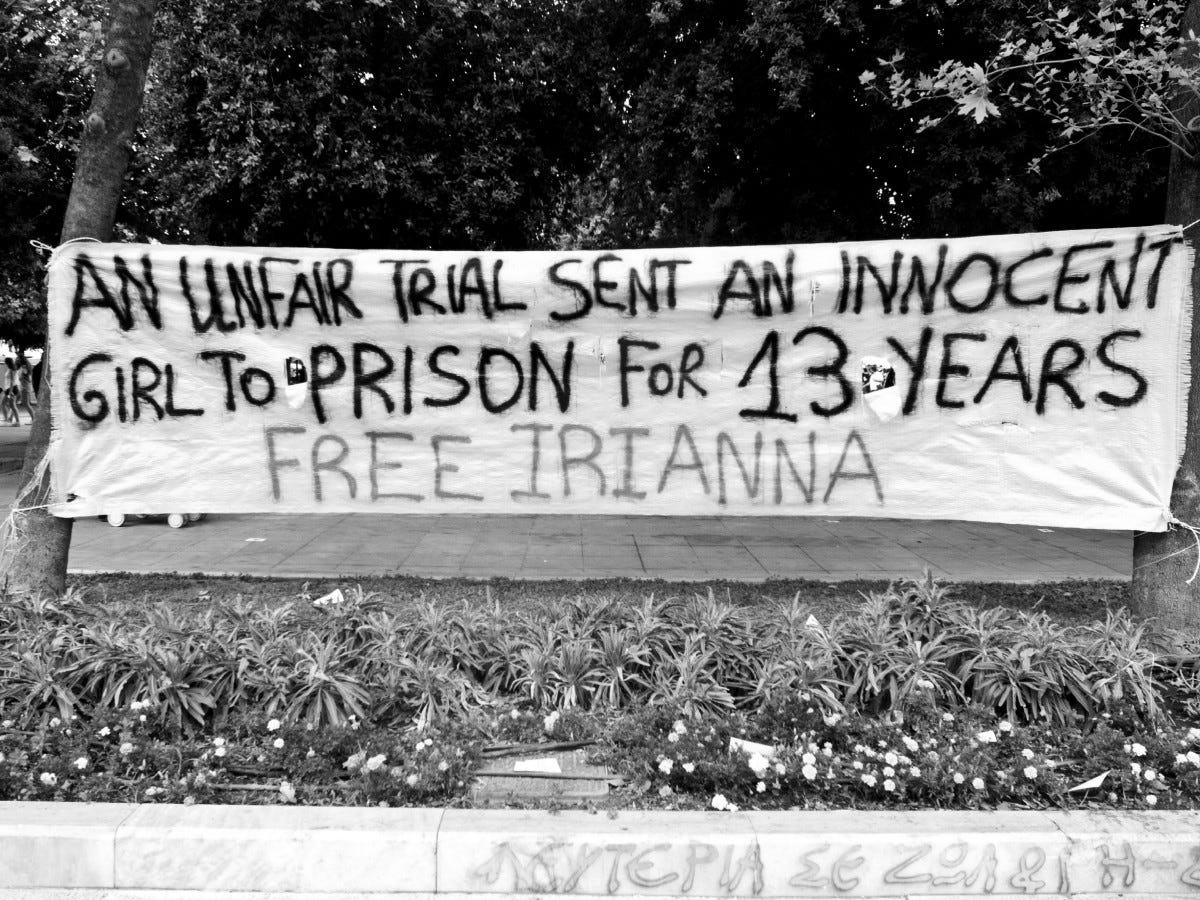 AN UNFAIR TRIAL SENT AN INNOCENT
GIRL TO PRISON FOR 13 YEARS
FREE IRIANNA
ΛΕΥΤΕΡΙΑ ΣΕ